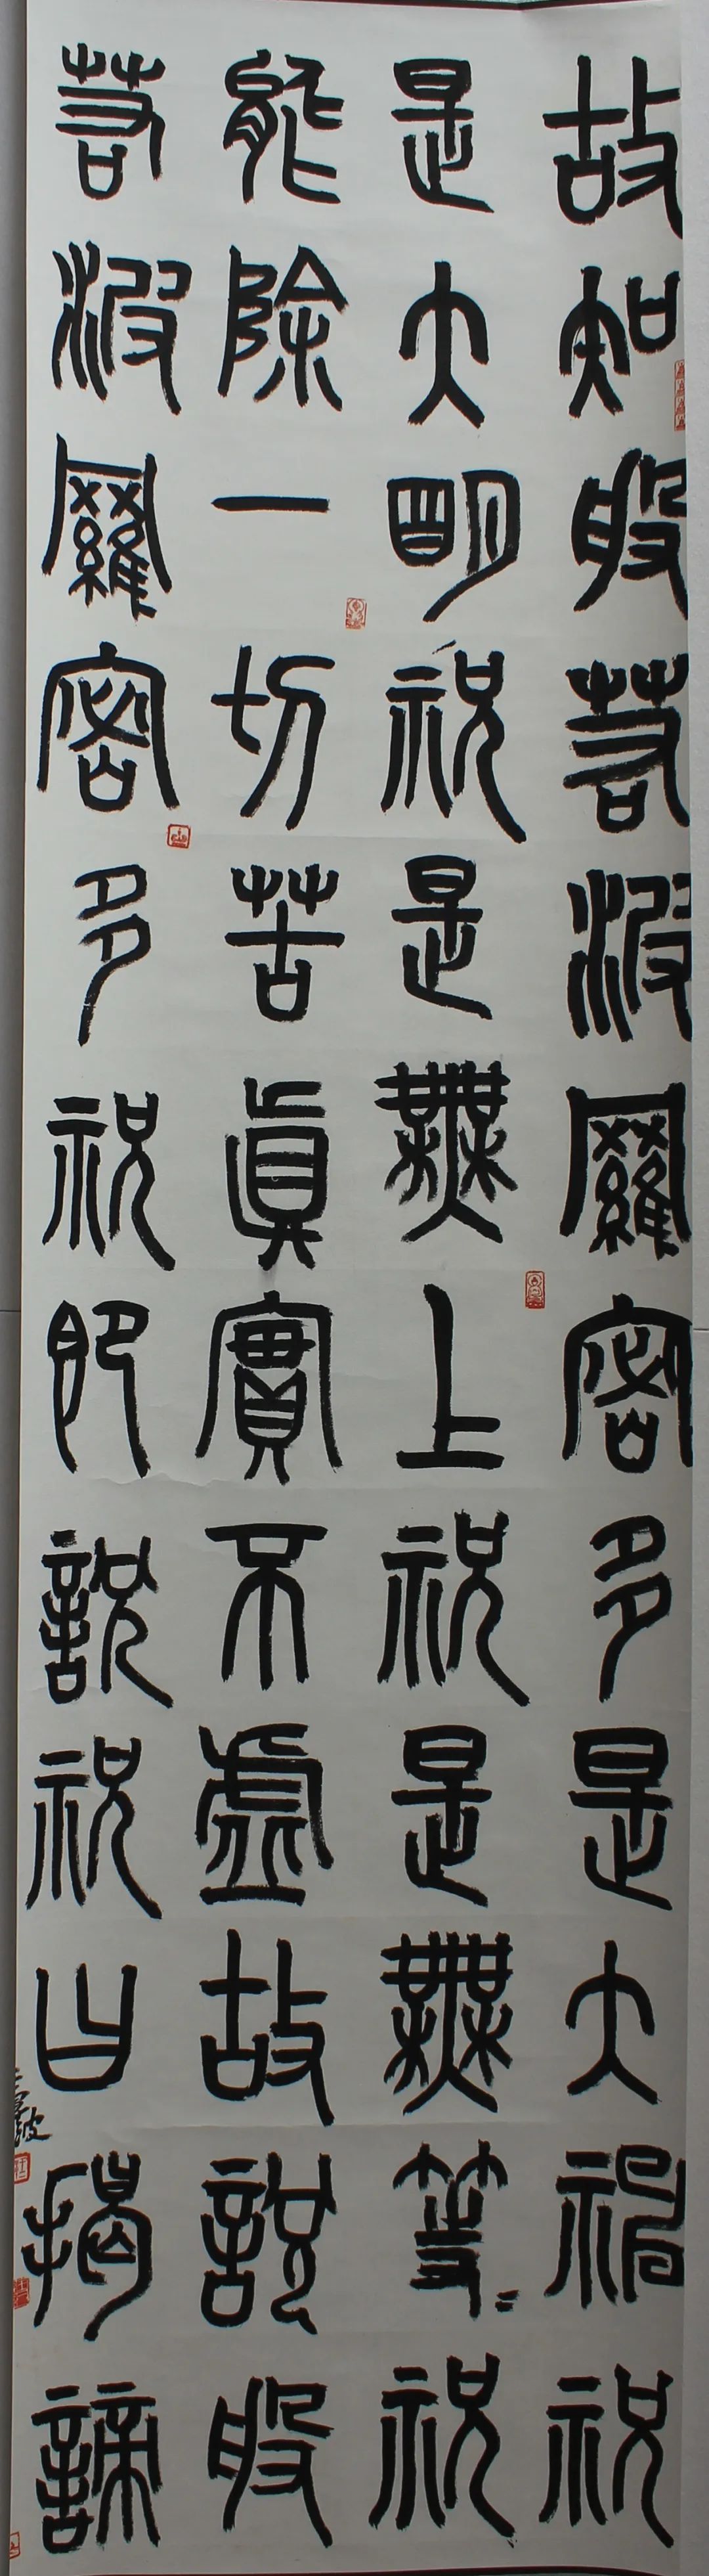 故知般若波羅密多是大神祝
是大明祝是無上祝是無等〻祝
能除一切苦真實不虛故說般
若波羅密多祝即說祝曰揭諦